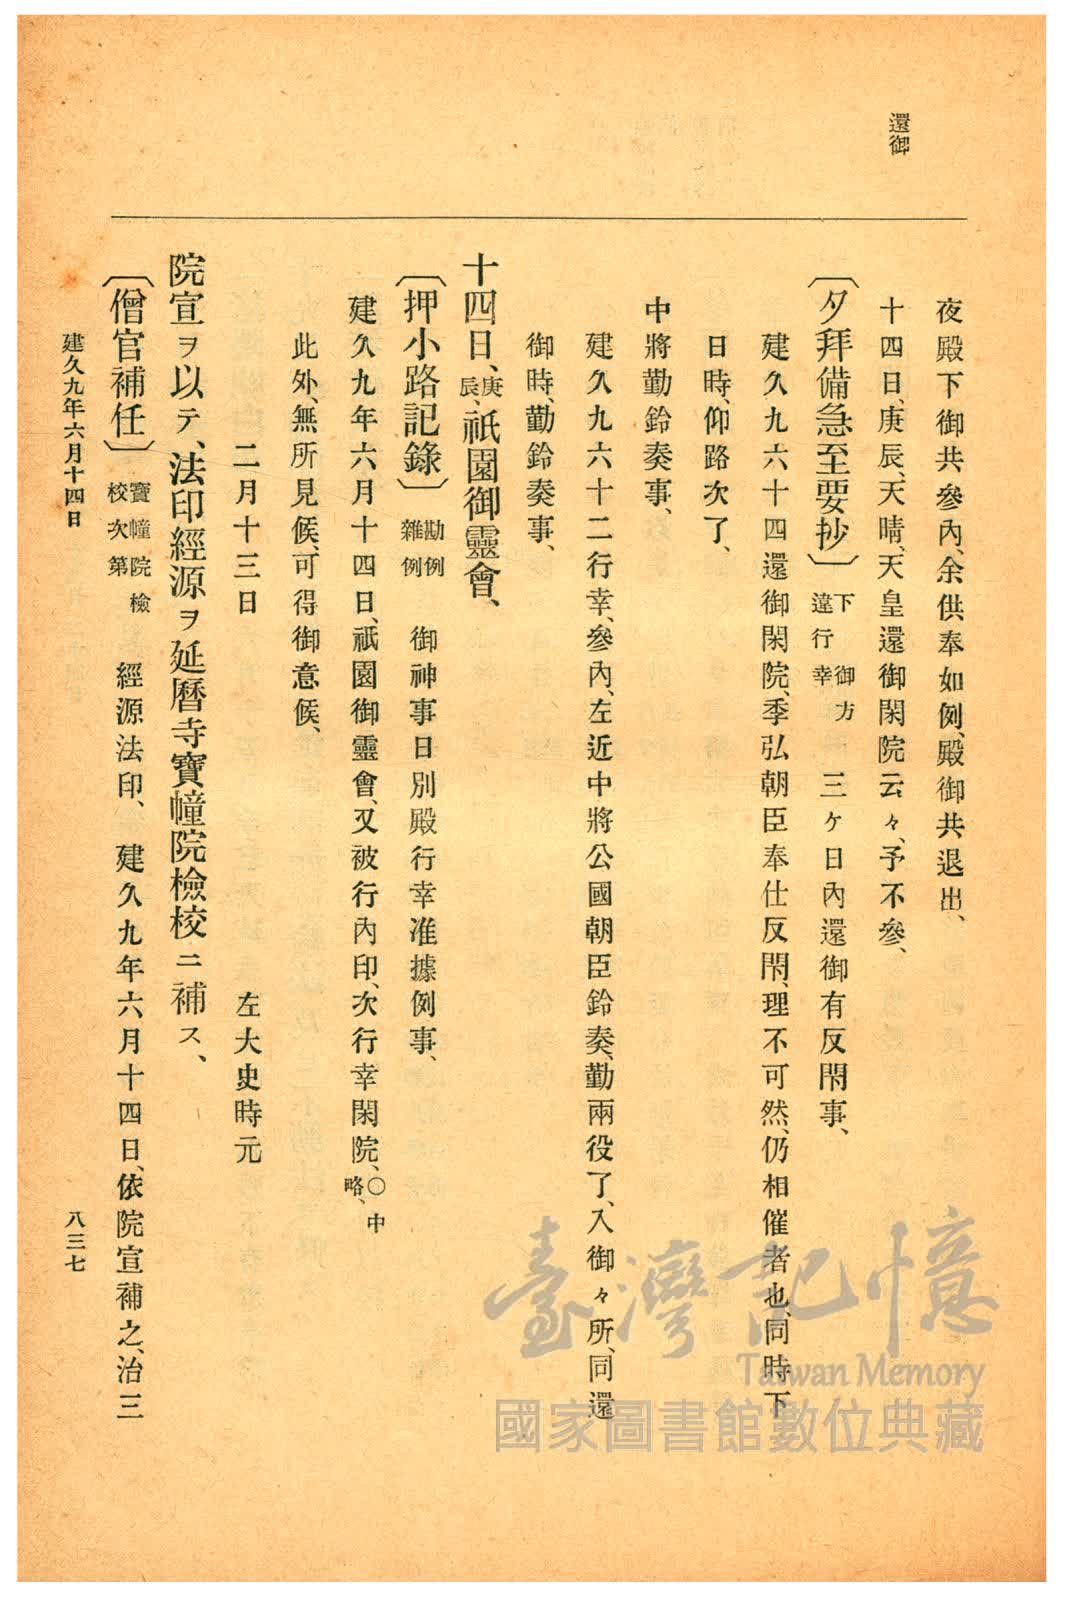 還御
夜殿下御共參內、余供奉如例、殿御共退出、
十四日、庚辰、天晴、天皇還御閑院云々、予不參、
〔夕拜備急至要抄〕下 御方違行幸 三ケ日內還御有反閇事、
建久九六十四還御閑院、季弘朝臣奉仕反閇、理不可然、仍相催者也、同時下
日時、仰路次了、
中將勤鈴奏事、
建久九六十二行幸、參內、左近中將公國朝臣鈴奏、勤兩役了、入御々所、同還
御時、勤鈴奏事、
十四日、庚辰、祇園御靈會、
〔押小路記錄〕勘例雜例 御神事日別殿行幸准據例事、
建久九年六月十四日、祇園御靈會、又被行內印、次行幸閑院、○中略、
此外、無所見候、可得御意候、
二月十三日 左大史時元
院宣ヲ以テ、法印經源ヲ延曆寺寶幢院檢校ニ補ス、
〔僧官補任〕寶幢院檢校次第 經源法印、建久九年六月十四日、依院宣補之、治三
建久九年六月十四日
八三七
臺灣記憶
Taiwan Memory
國家圖書館數位典藏